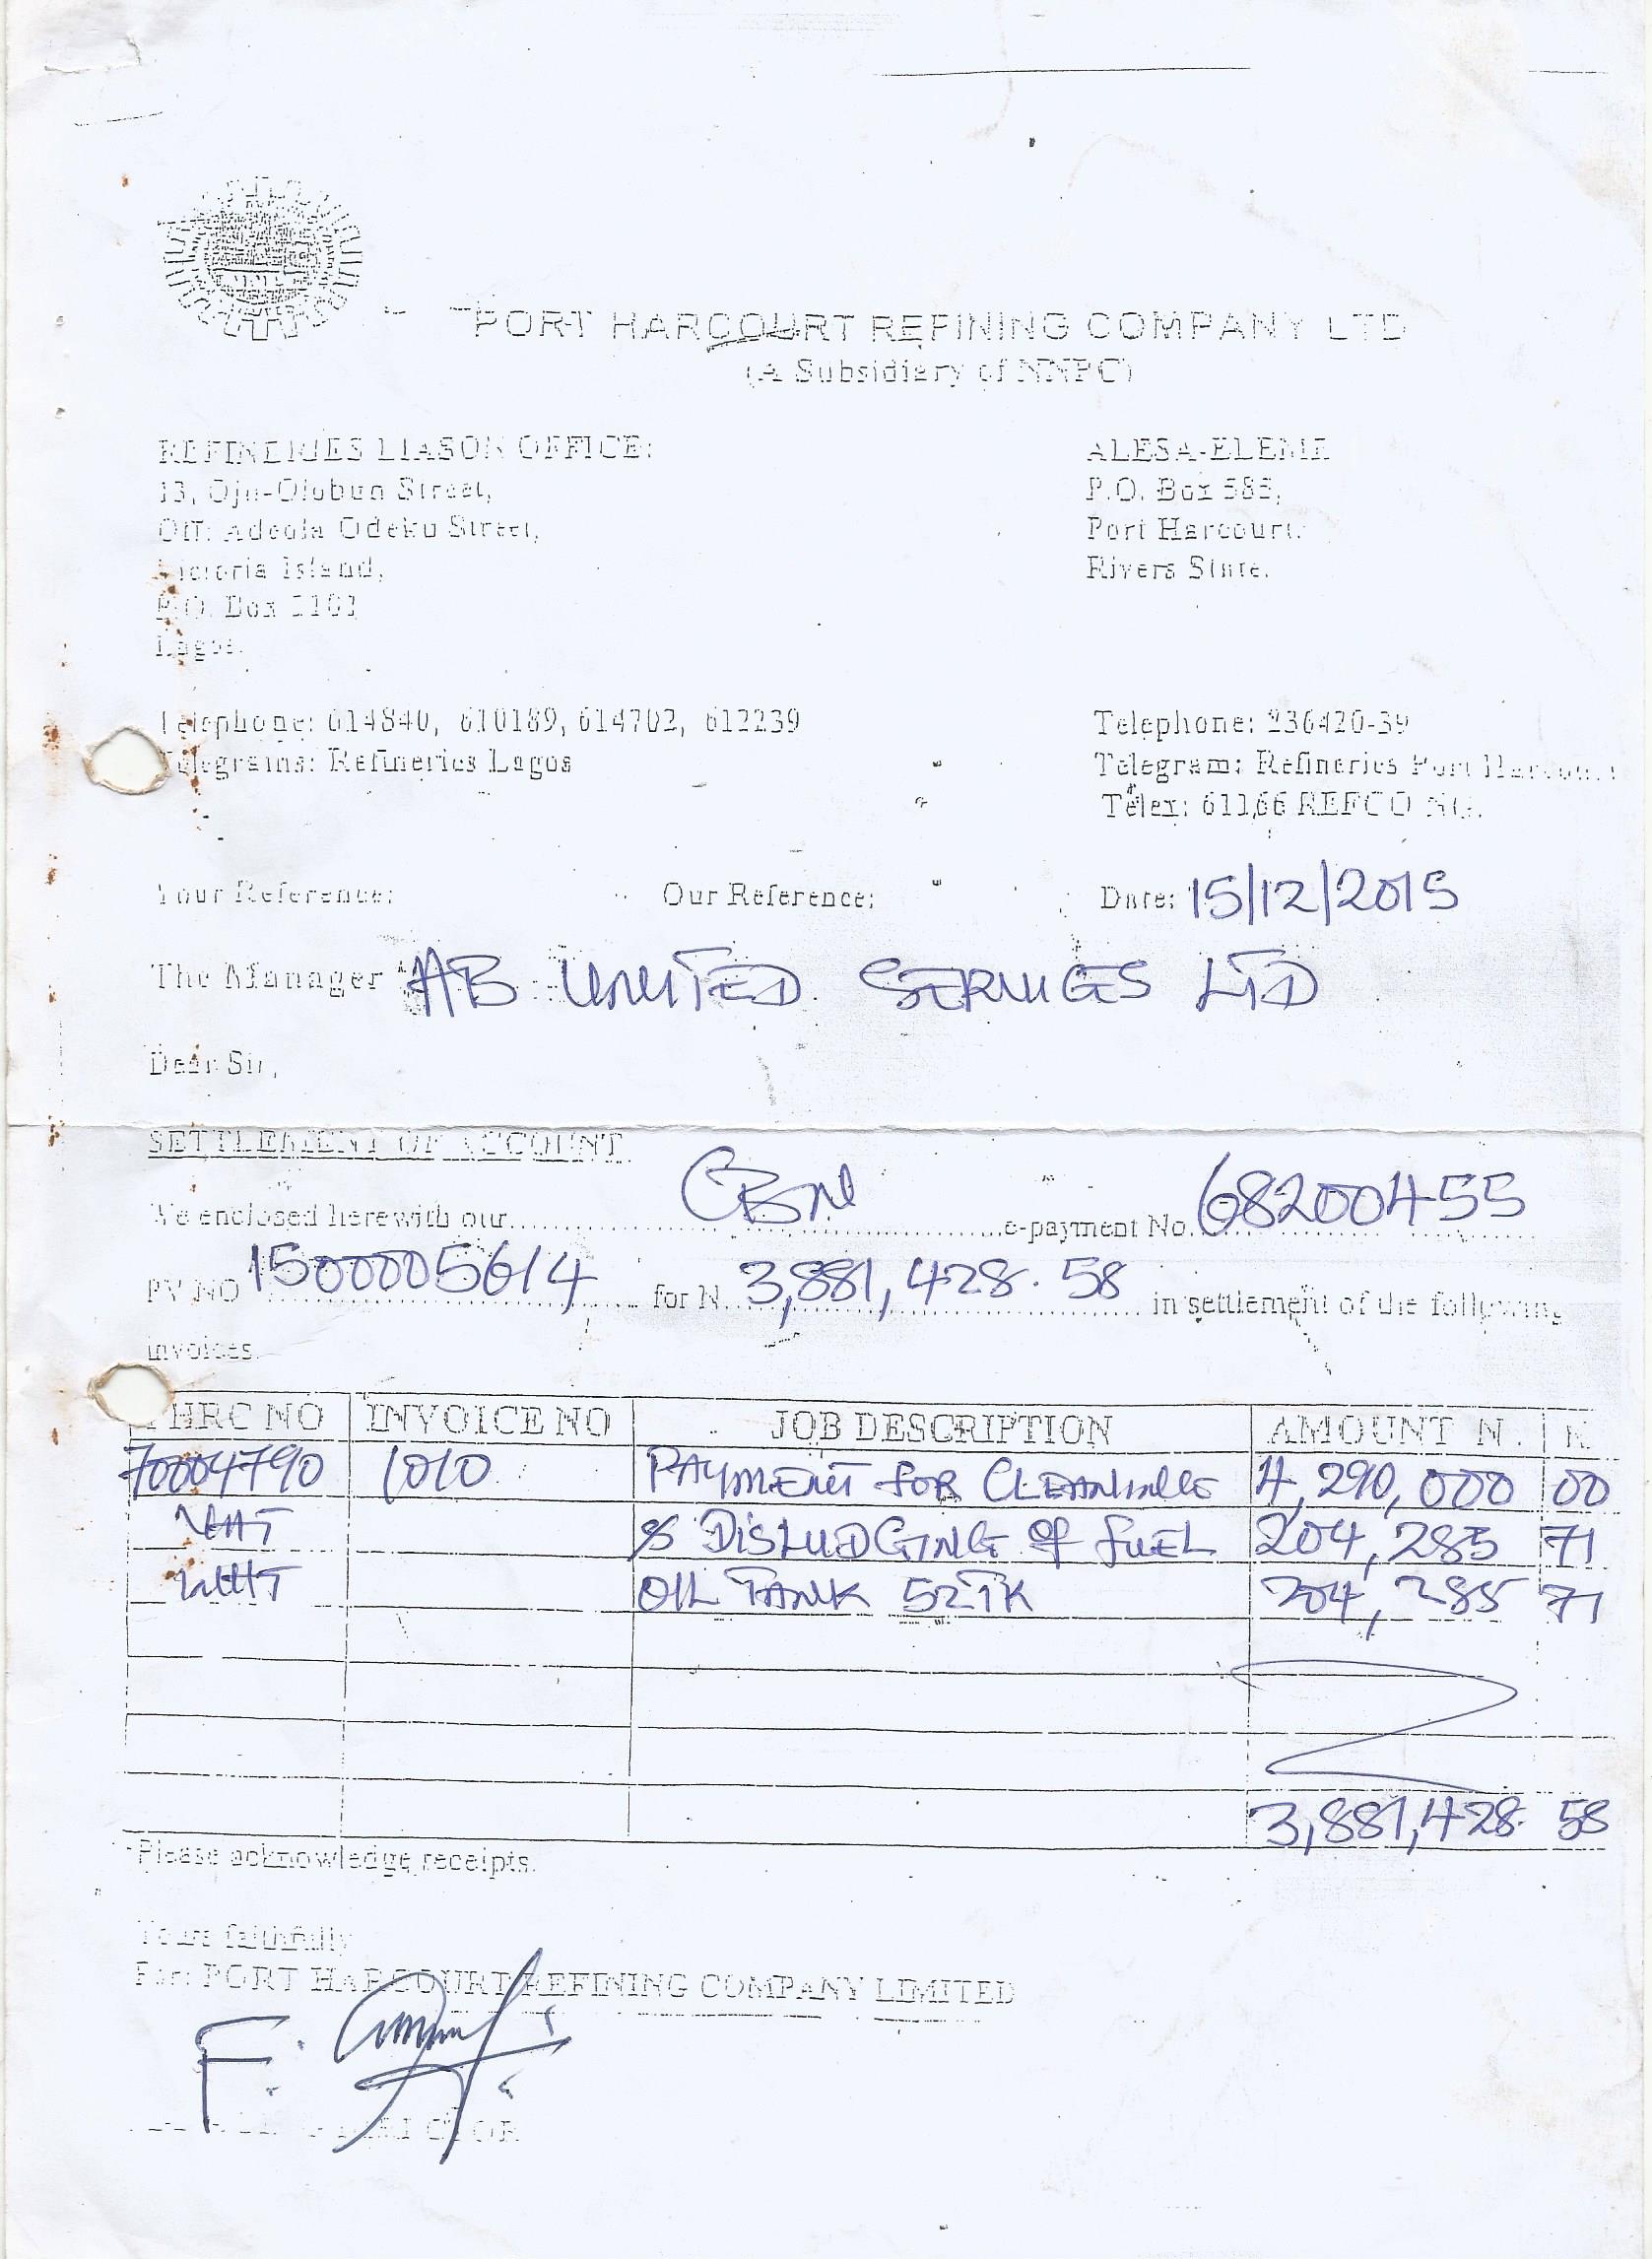 PORT HARCOURT REFINING COMPANY LTD
(A Subsidiary of NNPC)
REFINERIES LIASON OFFICE:
13, Oju-Olobun Street,
Off: Adeola Odeku Street,
Victoria Island,
P.O. Box
Lagos.
ALESA-ELEME
P.O. Box 585,
Port Harcourt.
Rivers State.
Telephone: 614840, 610189, 614702, 612239
Telegrams: Refineries Lagos
Telephone: 236420-39
Telegram: Refineries Port Harcourt
Telex: 61166 REFCO NG.
Your Reference: Our Reference: Date: 15/12/2015
The Manager AB UNITED SERVICES LTD
Dear Sir,
SETTLEMENT OF ACCOUNT
We enclosed herewith our CBN e-payment No. 68200455
PV NO 1500005614 for N 3,881,428.58 in settlement of the following
invoices.
PHRC NO INVOICE NO JOB DESCRIPTION AMOUNT N. K
70004790 1010 PAYMENT FOR CLEANING 4,290,000 00
VAT & DISLUDGING OF FUEL 204,285 71
WHT OIL TANK 52TK 204,285 71
3,881,428. 58
Please acknowledge receipts.
Yours faithfully
For: PORT HARCOURT REFINING COMPANY LIMITED
F.